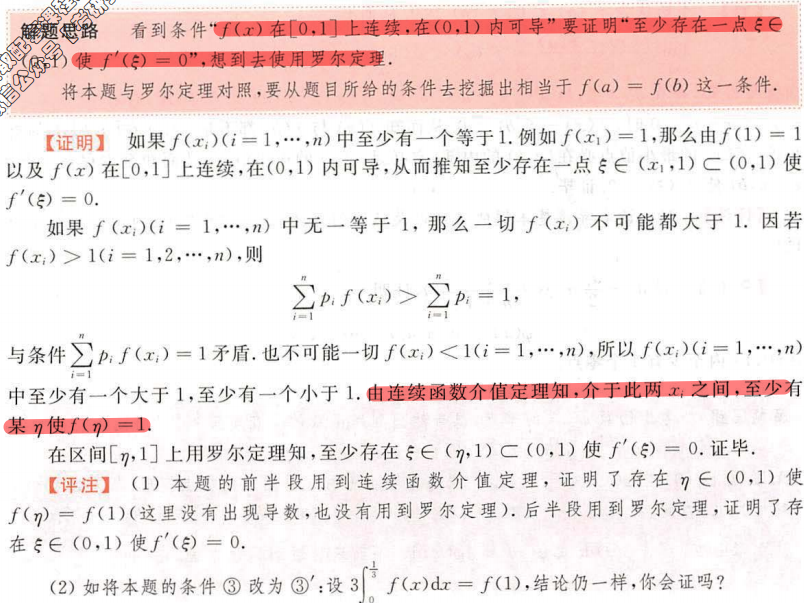 解题思路 看到条件“f(x)在[0,1]上连续,在(0,1)内可导”要证明“至少存在一点ξ∈
(0,1)使 f′(ξ)=0”,想到去使用罗尔定理.
将本题与罗尔定理对照,要从题目所给的条件去挖掘出相当于 f(a)=f(b)这一条件.
【证明】 如果 f(xᵢ)(i=1,⋯,n)中至少有一个等于1.例如 f(x₁)=1,那么由 f(1)=1
以及 f(x)在[0,1]上连续,在(0,1)内可导,从而推知至少存在一点 ξ∈(x₁,1)⊂(0,1)使
f′(ξ)=0.
如果 f(xᵢ)(i=1,⋯,n)中无一等于1,那么一切 f(xᵢ)不可能都大于1.因若
f(xᵢ)>1(i=1,2,⋯,n),则
∑_{i=1}^{n} pᵢ f(xᵢ) > ∑_{i=1}^{n} pᵢ = 1,
与条件 ∑_{i=1}^{n} pᵢ f(xᵢ)=1矛盾.也不可能一切 f(xᵢ)<1(i=1,⋯,n),所以 f(xᵢ)(i=1,⋯,n)
中至少有一个大于1,至少有一个小于1.由连续函数介值定理知,介于此两 xᵢ 之间,至少有
某 η 使 f(η)=1.
在区间[η,1]上用罗尔定理知,至少存在 ξ∈(η,1)⊂(0,1)使 f′(ξ)=0.证毕.
【评注】 (1) 本题的前半段用到连续函数介值定理,证明了存在 η∈(0,1)使
f(η)=f(1)(这里没有出现导数,也没有用到罗尔定理).后半段用到罗尔定理,证明了存
在 ξ∈(0,1)使 f′(ξ)=0.
(2) 如将本题的条件③改为③′:设 3∫_{0}^{1/3} f(x)dx=f(1),结论仍一样,你会证吗?